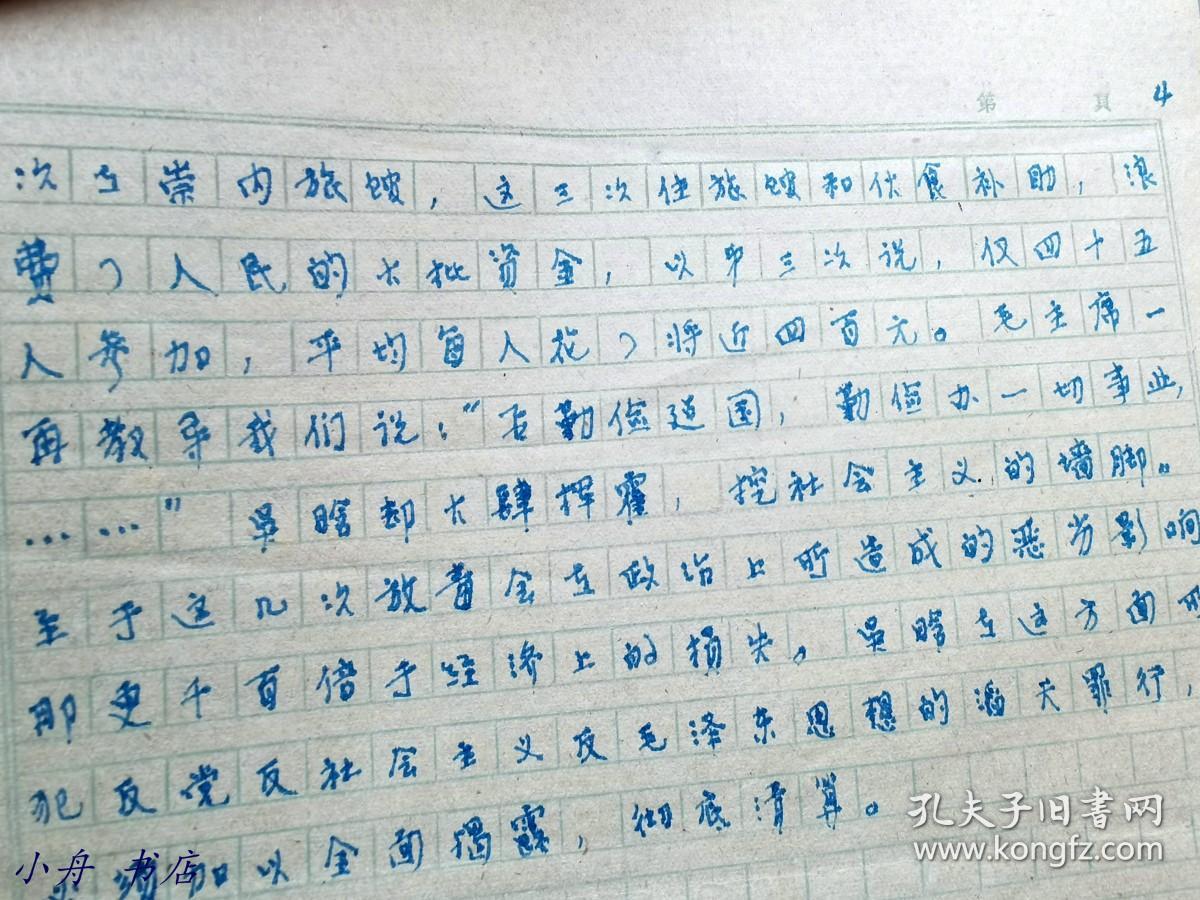 第 頁 4
次了崇内旅馆，这三次住旅馆和伙食补助，浪
费了人民的大批资金，以第三次说，仅四十五
人参加，平均每人花了将近四百元。毛主席一
再教导我们说：“要勤俭建国，勤俭办一切事业，
……”吴晗却大肆挥霍，挖社会主义的墙脚。
至于这几次放毒会在政治上所造成的恶劣影响
那更千百倍于经济上的损失，吴晗在这方面所
犯反党反社会主义反毛泽东思想的滔天罪行，
须加以全面揭露，彻底清算。
小舟 书店
孔夫子旧书网
www.kongfz.com